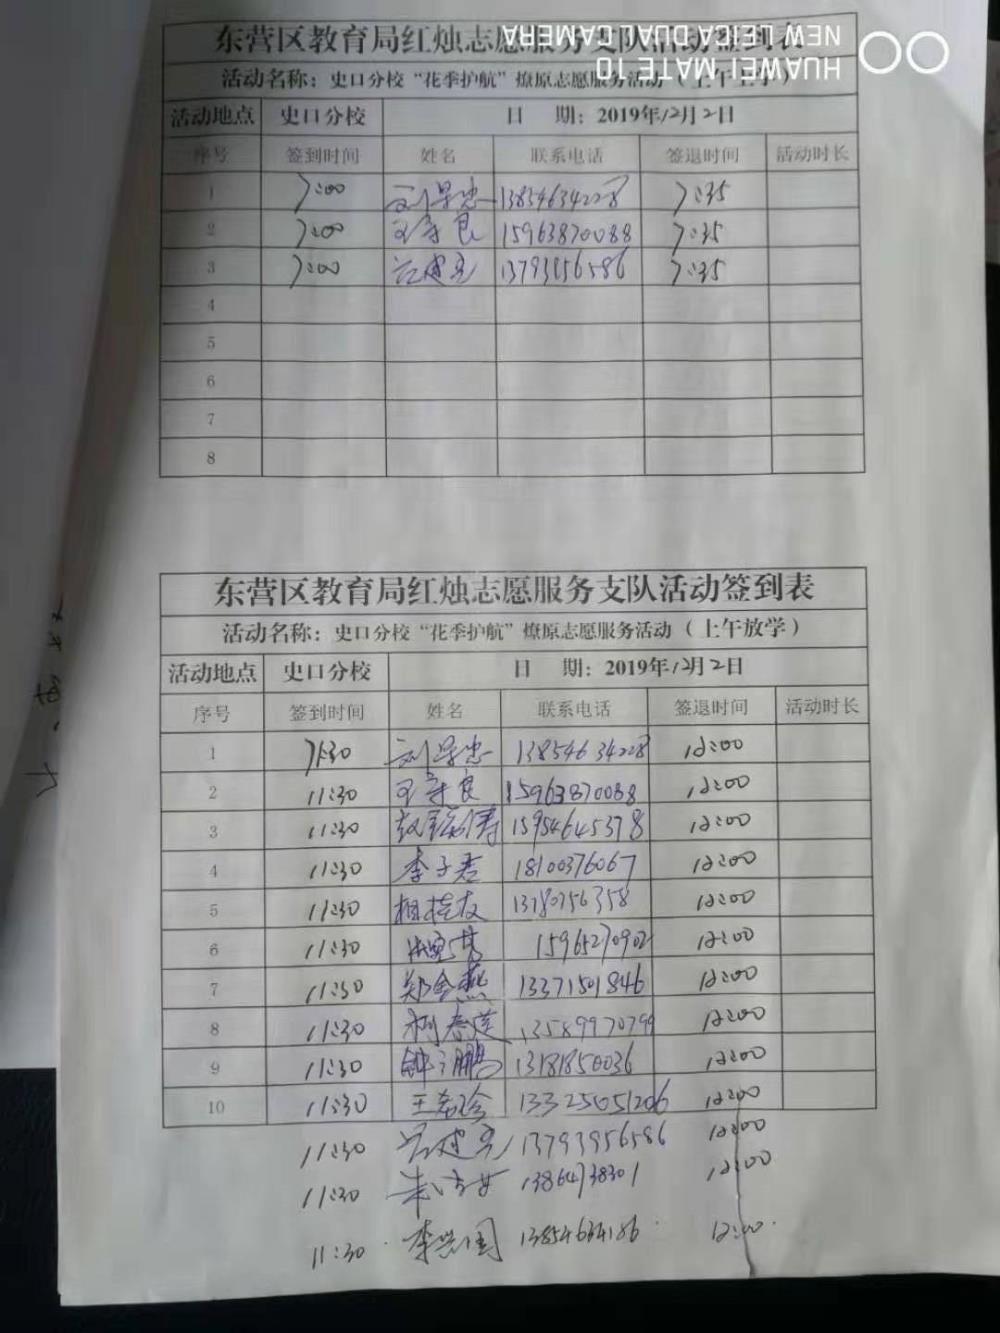 东营区教育局红烛志愿服务支队活动签到表
活动名称：史口分校“花季护航”燎原志愿服务活动（上午上学）
活动地点 史口分校 日 期：2019年12月2日
序号 签到时间 姓名 联系电话 签退时间 活动时长
1 7:00 13854634228 7:35
2 7:00 王守良 15963870088 7:35
3 7:00 7:35
4
5
6
7
8
东营区教育局红烛志愿服务支队活动签到表
活动名称：史口分校“花季护航”燎原志愿服务活动（上午放学）
活动地点 史口分校 日 期：2019年12月2日
序号 签到时间 姓名 联系电话 签退时间 活动时长
1 11:30 13854634228 12:00
2 11:30 王守良 15963870088 12:00
3 11:30 15954645378 12:00
4 11:30 李子君 18100376067 12:00
5 11:30 12:00
6 11:30 15965270902 12:00
7 11:30 郑金燕 13371501846 12:00
8 11:30 柯春莲 13589970799 12:00
9 11:30 13181850036 12:00
10 11:30 13325051206 12:00
11:30 13793956586 12:00
11:30 13864738301 12:00
11:30 李兴国 13854634186 12:00
HUAWEI MATE 10
NEW LEICA DUAL CAMERA